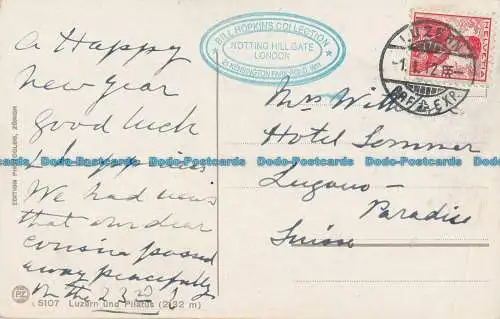 A Happy
New Year
Good luck
& happiness
We had news
that our dear
cousin passed
away peacefully
on the 23rd
BILL HOPKINS COLLECTION
NOTTING HILL GATE
LONDON
HELVETIA
LUZERN
BRF. EXP.
Mrs
Hotel Sommer
Lugano —
Paradiso
Suisse
EDITION PHOTOGLOB, ZÜRICH
PZ
5107 Luzern und Pilatus (2132 m)
Dodo-Postcards Dodo-Postcards Dodo-Postcards Dodo-Postcards Dodo-Postcards Dodo-Postcards